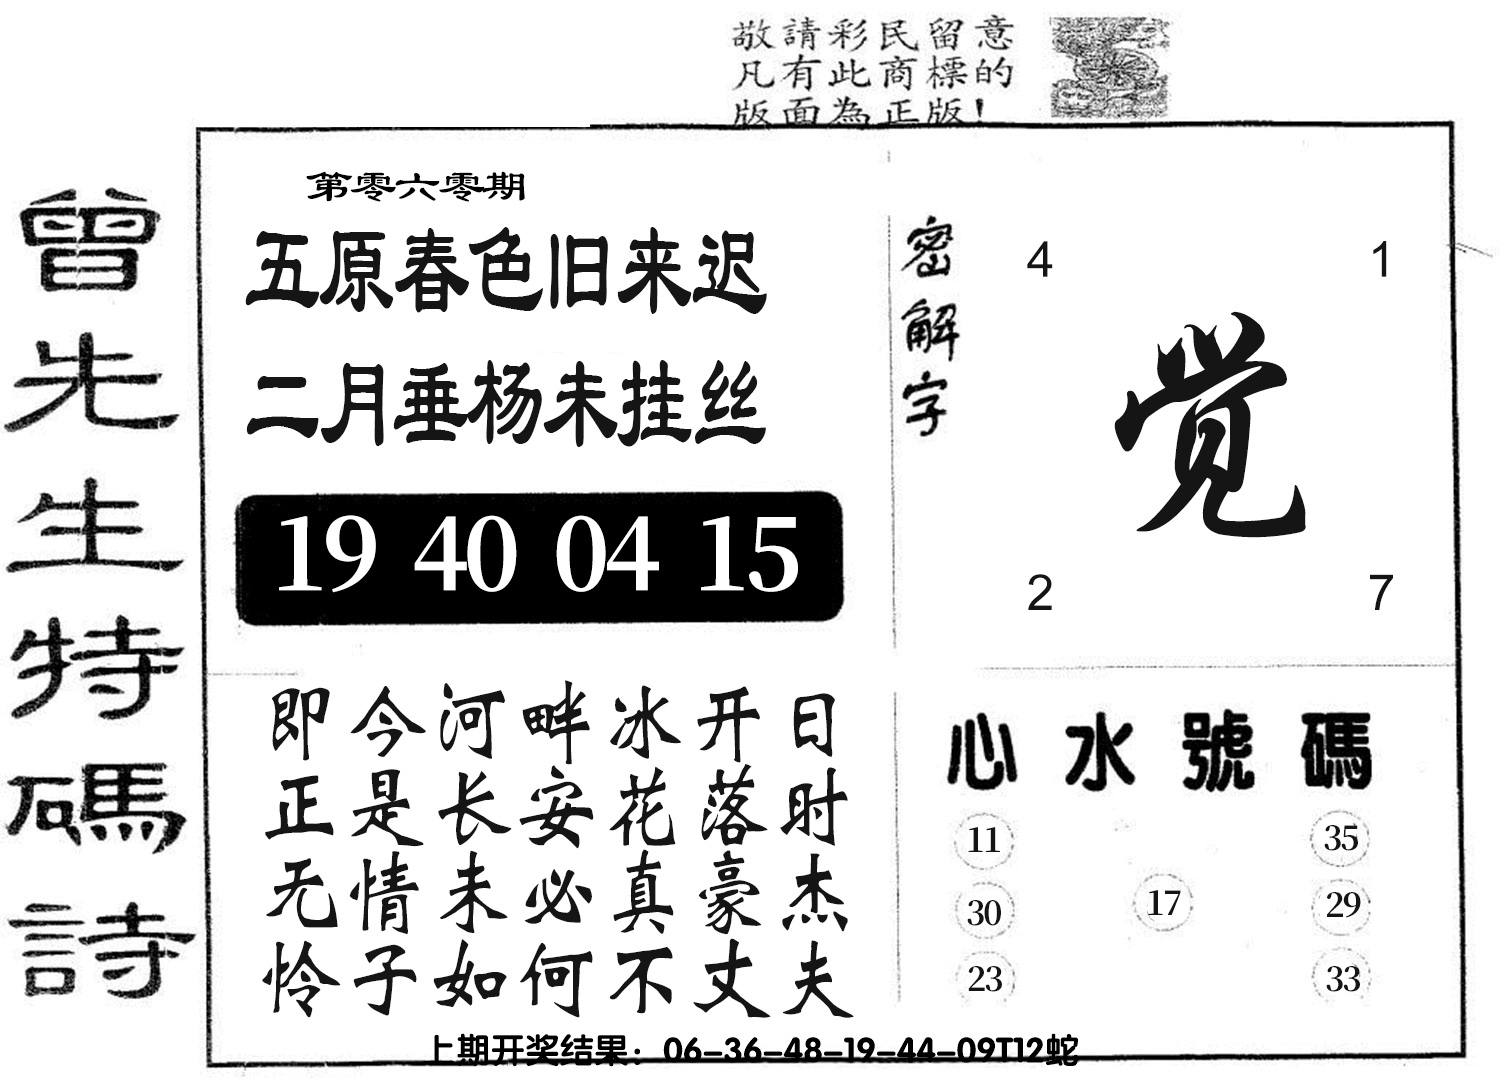 敬請彩民留意
凡有此商標的
版面為正版！
曾先生特碼詩
第零六零期
五原春色旧来迟
二月垂杨未挂丝
19 40 04 15
密解字
4 1
觉
2 7
即今河畔冰开日
正是长安花落时
无情未必真豪杰
怜子如何不丈夫
心水號碼
11 35
30 17 29
23 33
上期开奖结果：06-36-48-19-44-09T12蛇